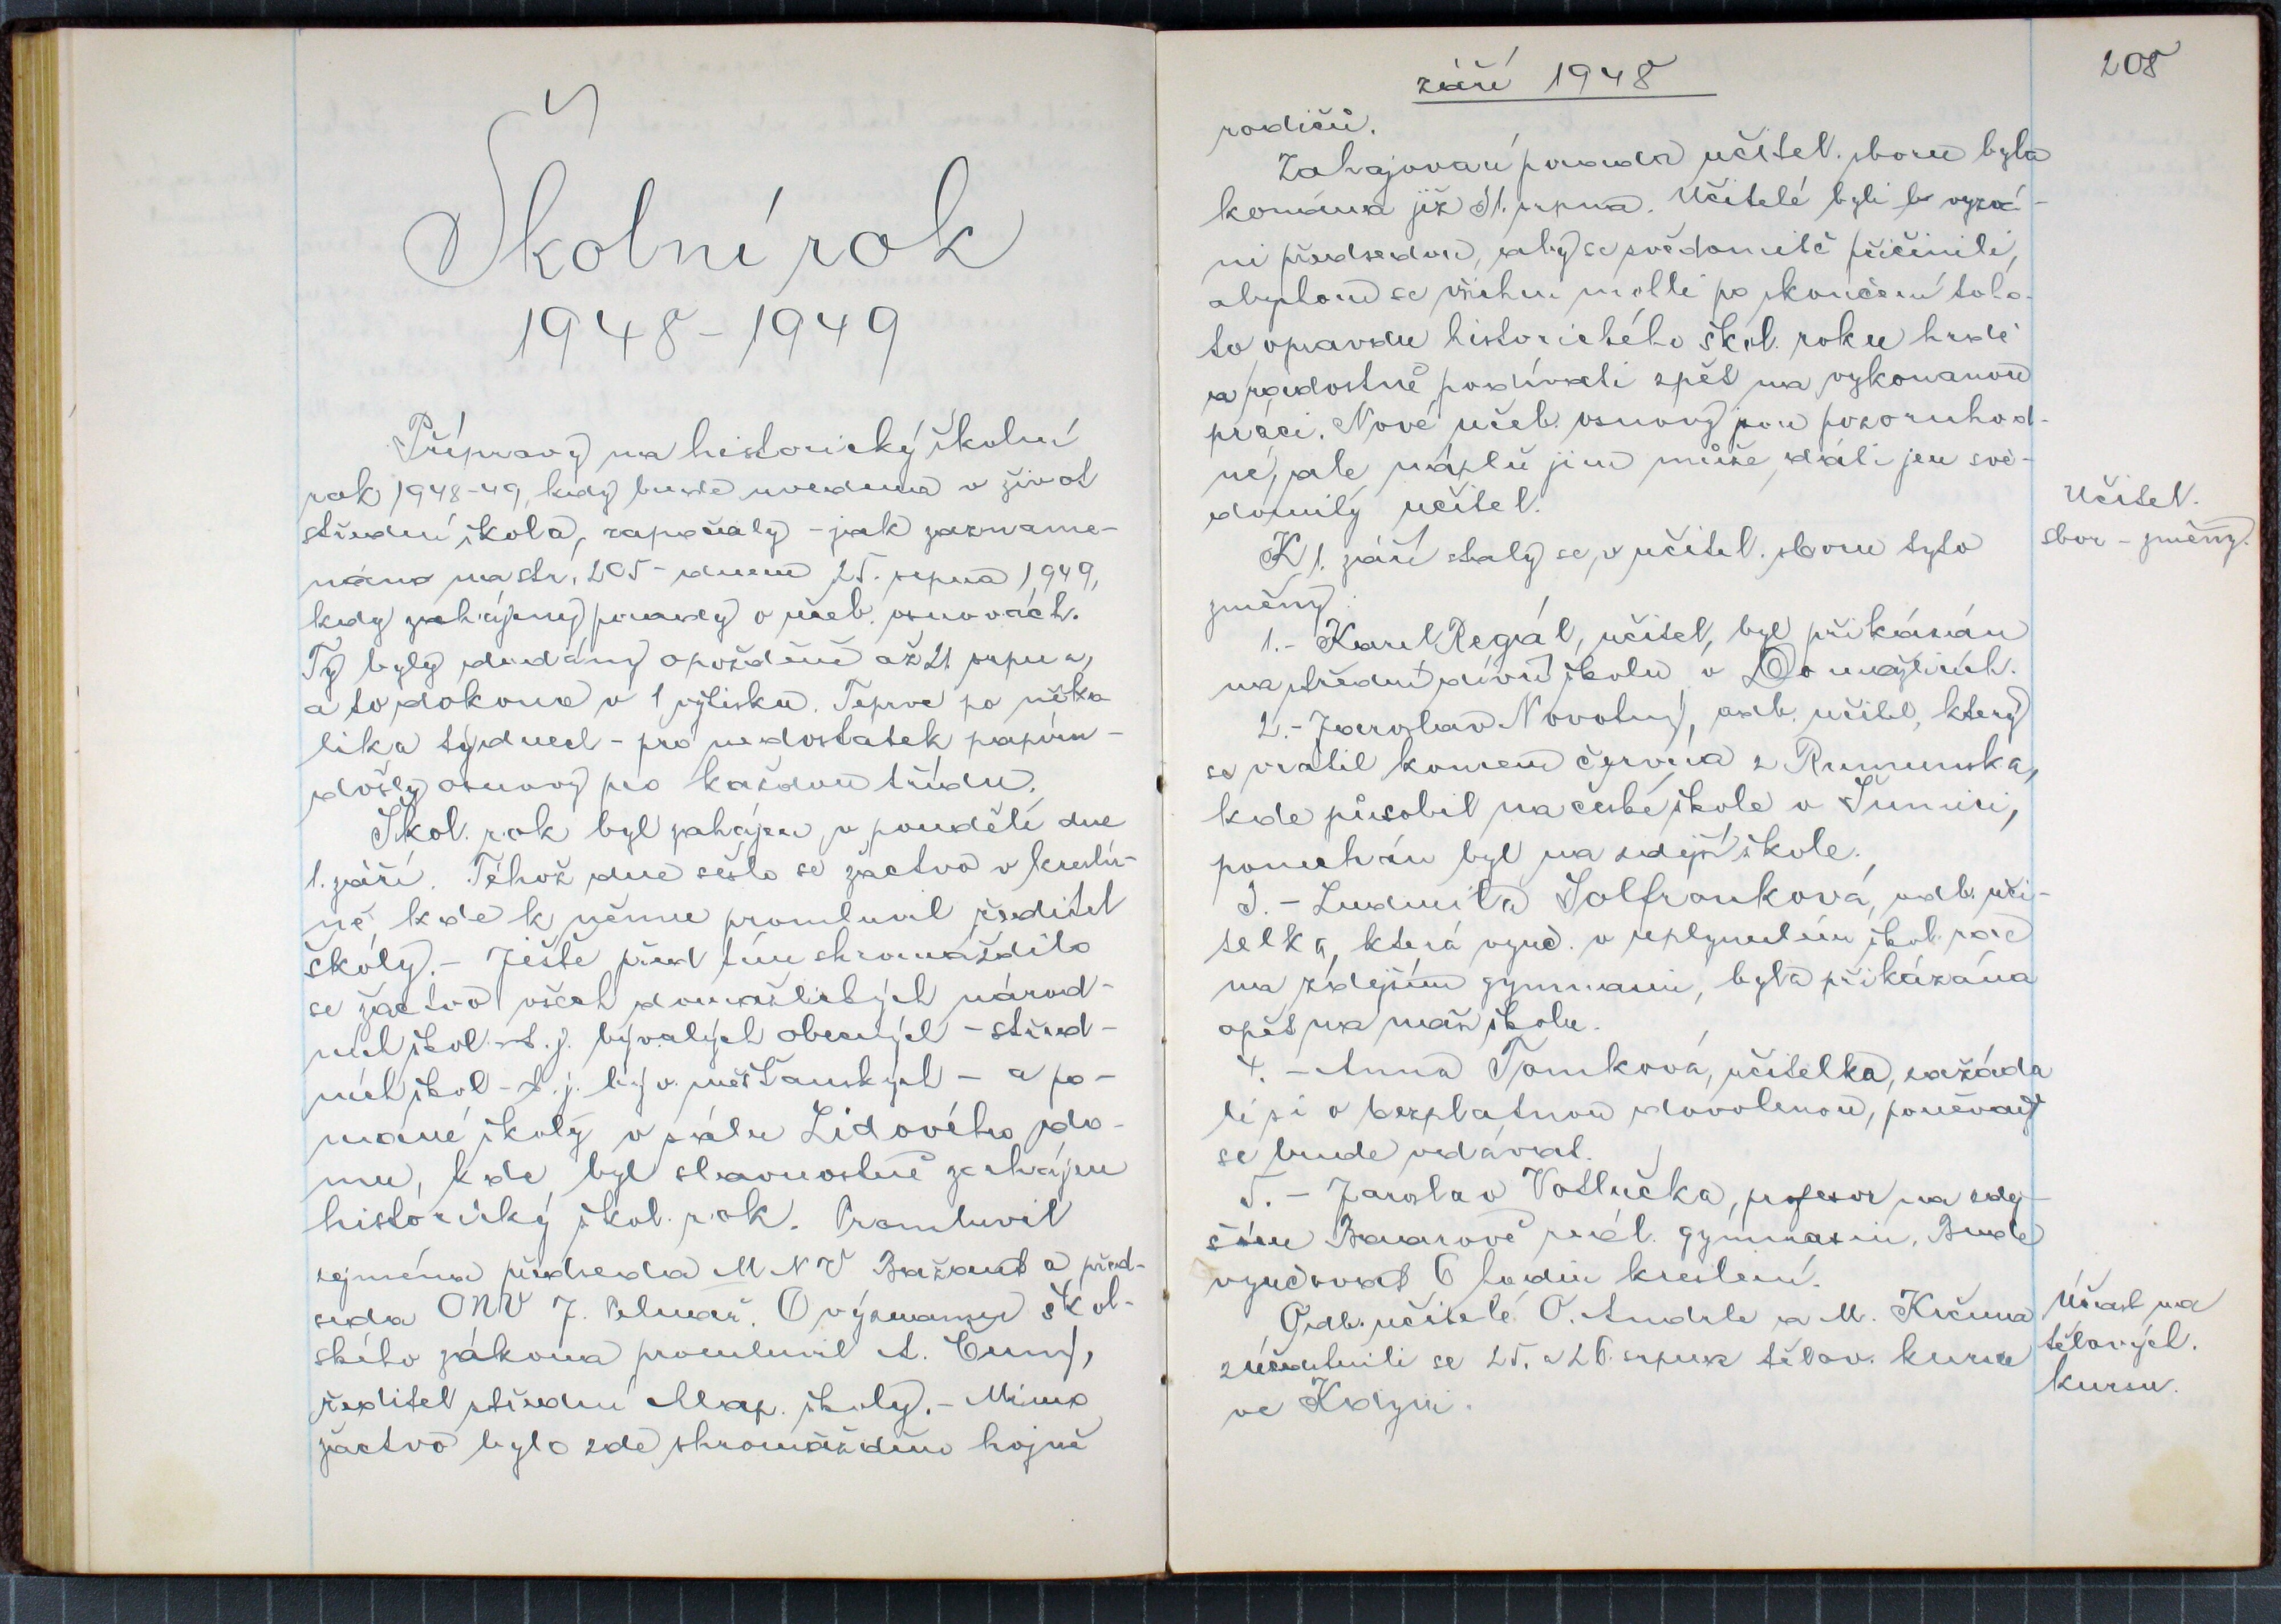 Školní rok
1948-1949
Přípravy na historický školní
rok 1948-49, kdy bude uvedena v život
střední škola, započaly - jak zazname-
náno na str. 205 - dnem 25. srpna 1949,
kdy zahájeny porady o učeb. osnovách.
Ty byly dodány opožděně až 21 srpna,
a to dokonce v 1 výtisku. Teprve po něko
lika týdnech - pro nedostatek papíru -
došly osnovy pro každou třídu.
Škol. rok byl zahájen v pondělí dne
1. září. Téhož dne sešlo se žactvo v kreslír-
ně, kde k němu promluvil ředitel
školy. - Ještě před tím shromáždilo
se žactvo všech domažlických národ-
ních škol - t. j. bývalých obecných - střed-
ních škol - t. j. býv. měšťanských - a po-
mocné školy v sálu Lidového do-
mu, kde byl slavnostně zahájen
historický škol. rok. Promluvil
zejména předseda MNV Bažant a před-
seda ONV J. Pelnář. O významu škol-
ského zákona promluvil A.
ředitel střední chlap. školy. - Mimo
žactvo bylo zde shromážděno hojně
září 1948
208
rodičů.
Zahajovací porada učitel. sboru byla
konána již 31. srpna. Učitelé byli b vyzvá-
ni předsedou, aby se svědomitě přičinili,
abychom se všichni mohli po skončení toho-
to opravdu historického škol. roku hrdě
a radostně podívati zpět na vykonanou
práci. Nové učeb. osnovy jsou pozoruhod-
né, ale náplň jim může dáti jen svě-
domitý učitel.
Učitel.
sbor - změny.
K 1. září staly se v učitel. sboru tyto
změny:
1. - Karel Regál, učitel, byl přikázán
na střední dívčí školu v Domažlicích.
2. - Jaroslav Novotný, odb. učitel, který
se vrátil koncem června z Rumunska,
kde působil na české škole v Šumici,
ponechán byl na zdejší škole.
3. - Ludmila Solfronková, odb. uči-
telka, která vyuč. v uplynulém škol. roce
na zdejším gymnasiu, byla přikázána
opět na naši školu.
4. - Anna Tomková, učitelka, zažáda
la si o bezplatnou dovolenou, poněvadž
se bude vdávat.
5. - Jaroslav Votlučka, profesor na zdej-
ším Baarově reál. gymnasiu. Bude
vyučovat 6 hodin kreslení.
Odb. učitelé O. Andrle a M. Krčma
zúčastnili se 25. a 26. srpna tělov. kursu
ve Kdyni.
Účast na
tělových.
kursu.